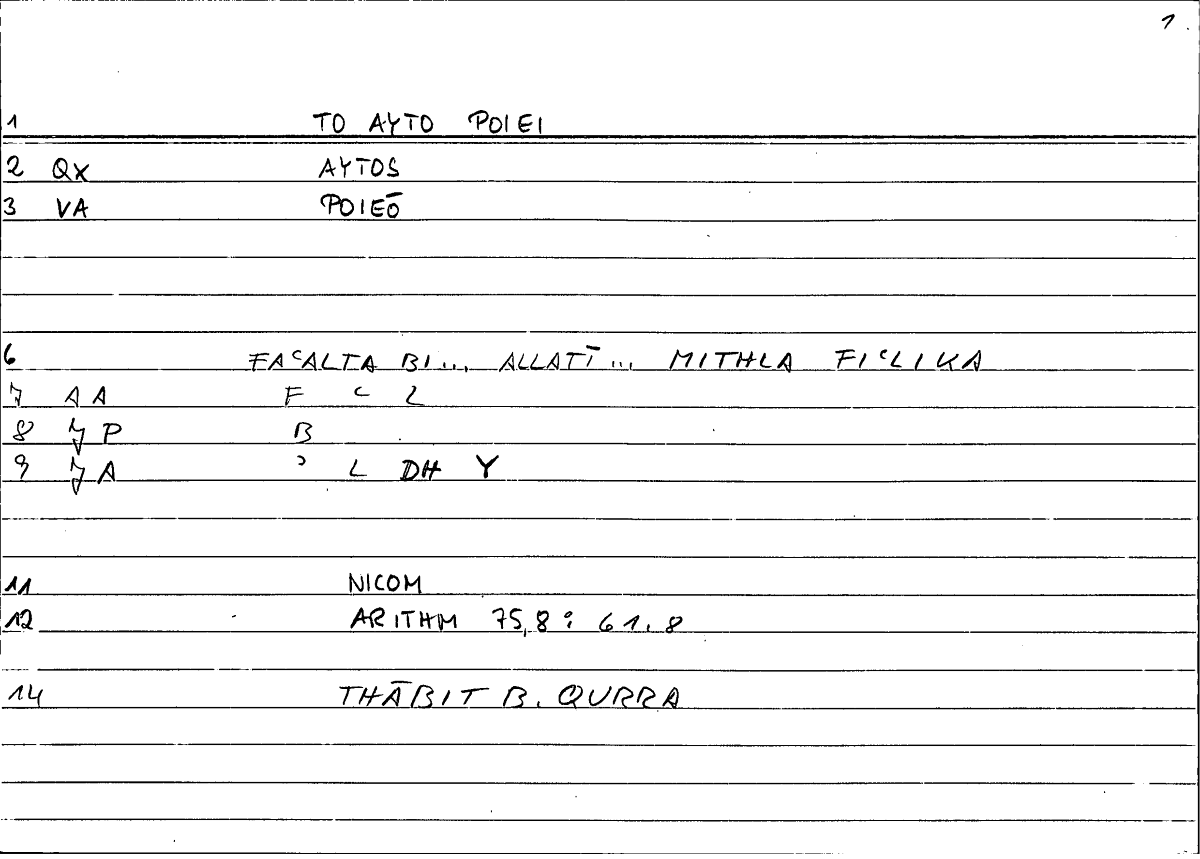 1.
1 TO AYTO POIEI
2 QX AYTOS
3 VA POIEŌ
6 FAʿALTA BI... ALLATĪ... MITHLA FIʿLIKA
7 AA F ʿ L
8 JP B
9 JA ʾ L DH Y
11 NICOM
12 ARITHM 75,8 : 61.8
14 THĀBIT B. QURRA